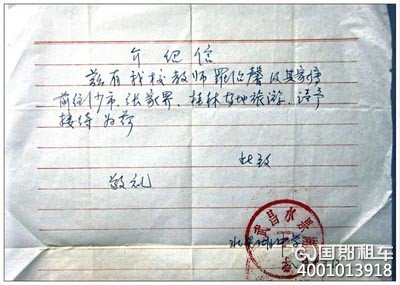 介绍信
兹有我校教师罗㑇馨及其家属
前往沙市、张家界、桂林等地旅游,请予
接待为荷
此致
敬礼
武昌水果湖
国郡租车
4001013918